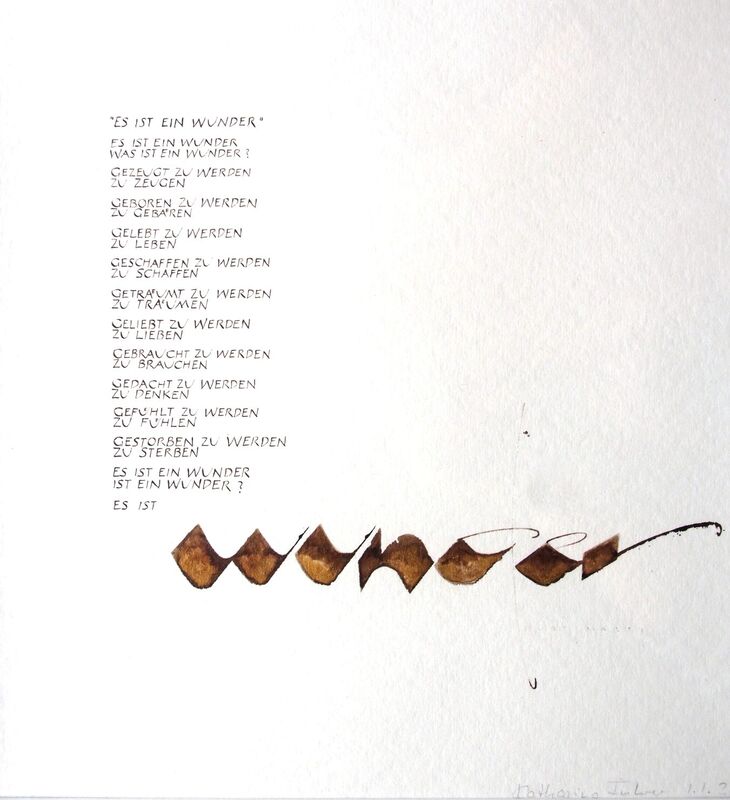 "ES IST EIN WUNDER"
ES IST EIN WUNDER
WAS IST EIN WUNDER?
GEZEUGT ZU WERDEN
ZU ZEUGEN
GEBOREN ZU WERDEN
ZU GEBÄREN
GELEBT ZU WERDEN
ZU LEBEN
GESCHAFFEN ZU WERDEN
ZU SCHAFFEN
GETRÄUMT ZU WERDEN
ZU TRÄUMEN
GELIEBT ZU WERDEN
ZU LIEBEN
GEBRAUCHT ZU WERDEN
ZU BRAUCHEN
GEDACHT ZU WERDEN
ZU DENKEN
GEFÜHLT ZU WERDEN
ZU FÜHLEN
GESTORBEN ZU WERDEN
ZU STERBEN
ES IST EIN WUNDER
IST EIN WUNDER?
ES IST
wunder
Katharina